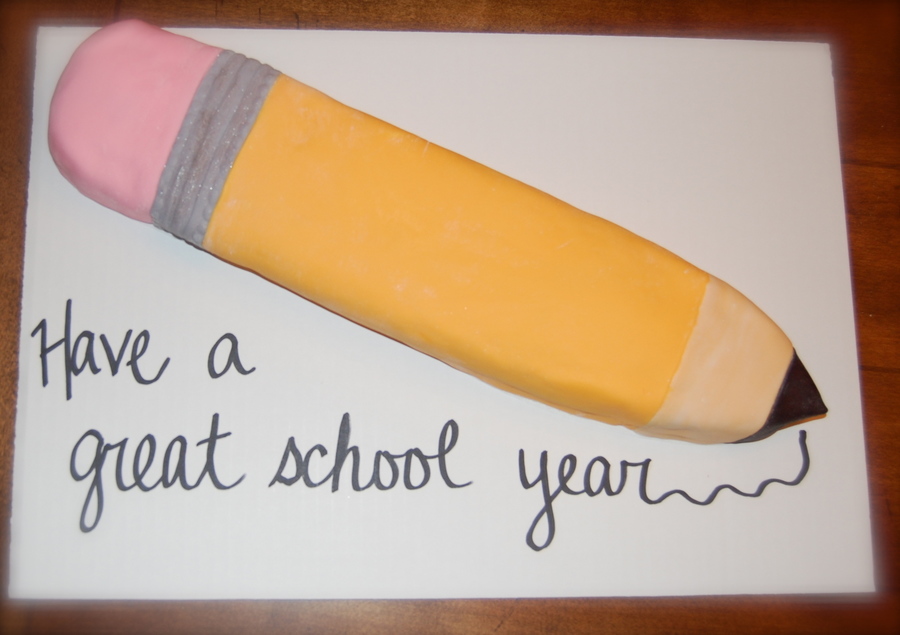 Have a
great school year